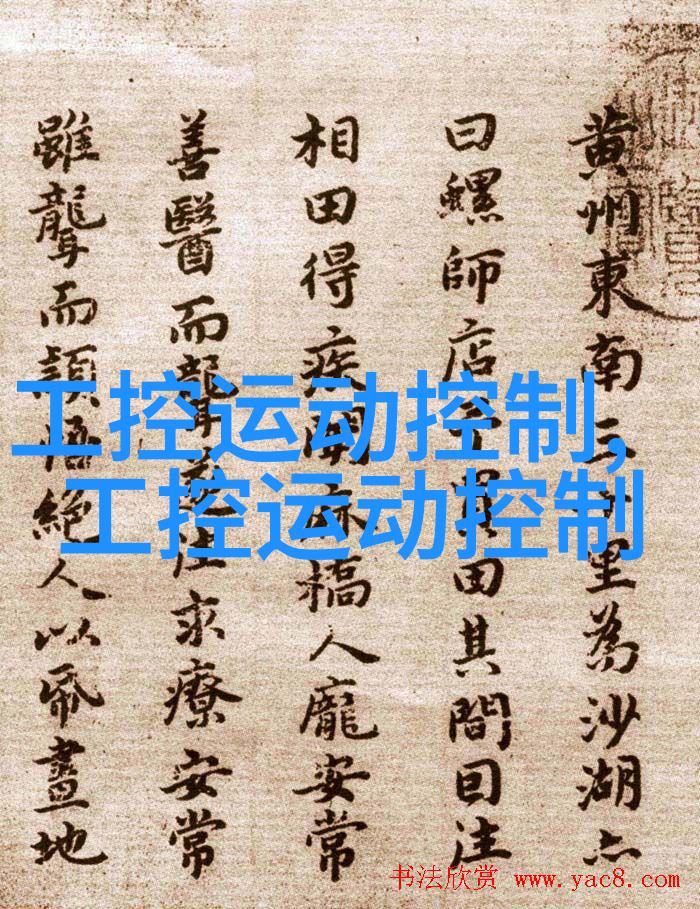 黃州東南三十里為沙湖亦
曰螺師店予買田其間因往
相田得疾聞麻橋人龐安常
善醫而聾遂往求療安常
雖聾而穎悟絕人以帋畫地
工控运动控制,
工控运动控制
书法欣赏 www.yac8.com